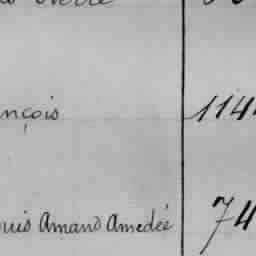 nçois 114
ouis Amand Amedée 74